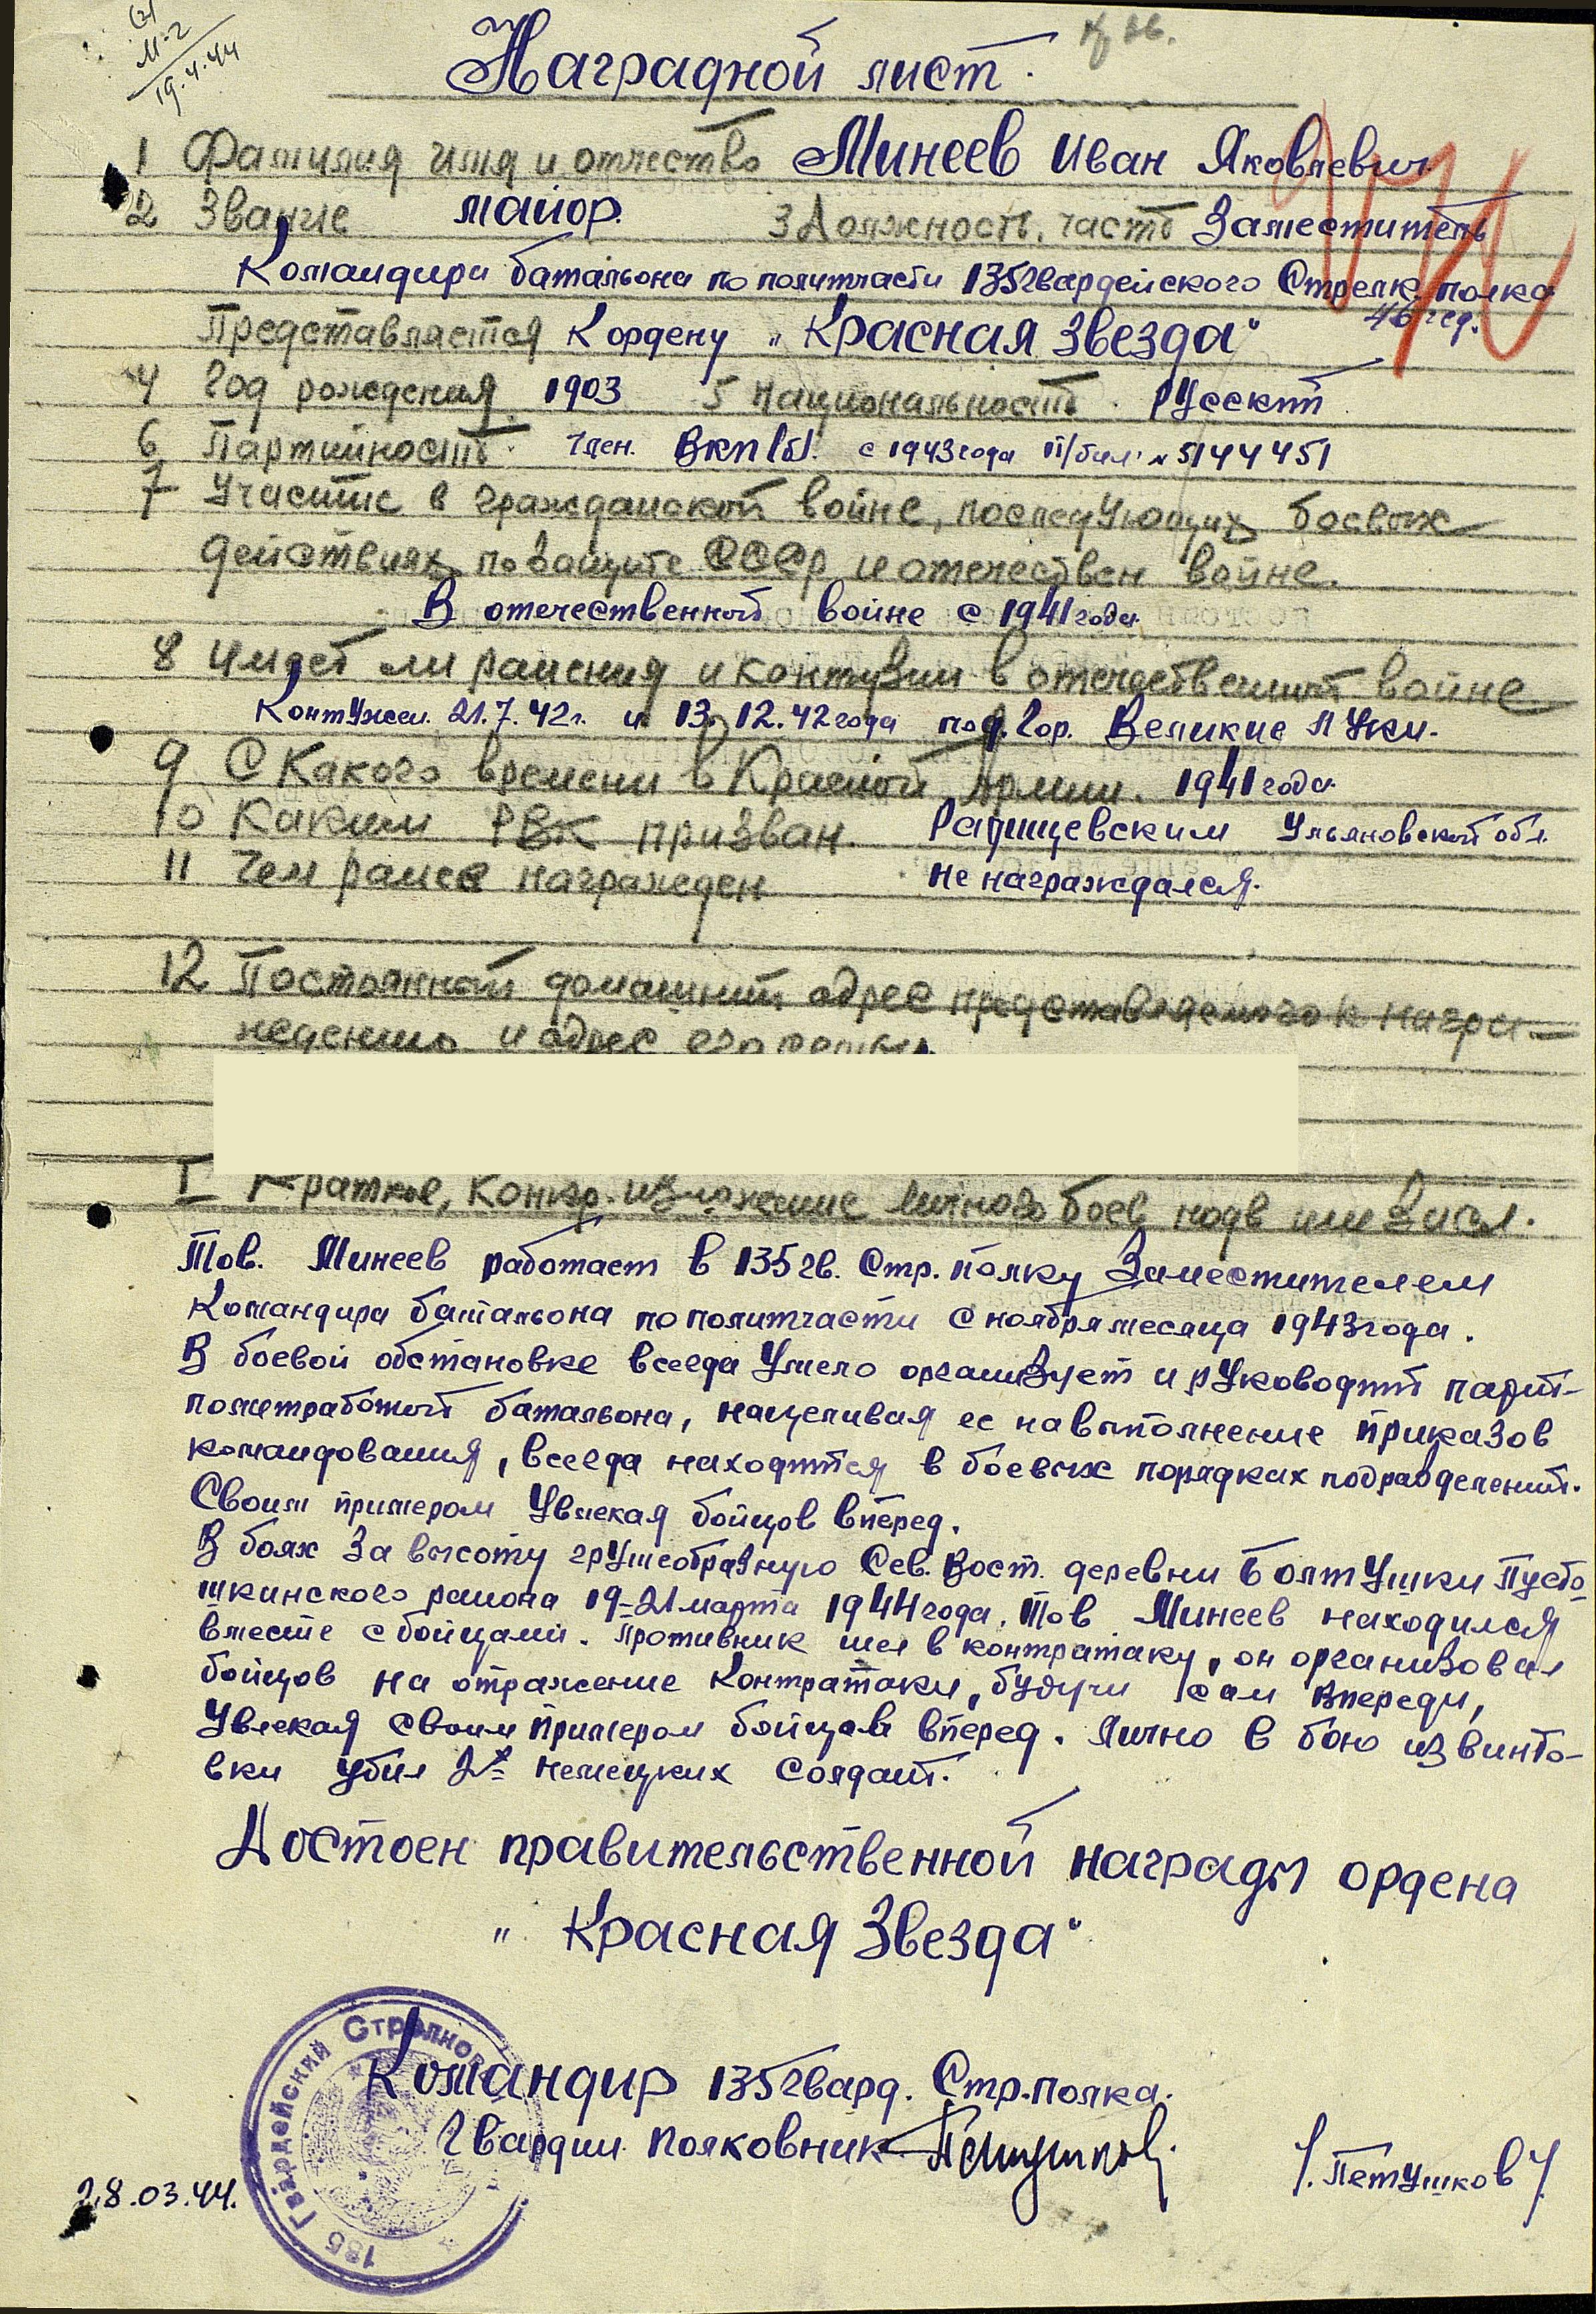 М-2
19.4.44
Наградной лист.
1 Фамилия имя и отчество Минеев Иван Яковлевич
2 Звание майор. 3 Должность, часть Заместитель
Командира батальона по политчасти 135 гвардейского Стрелк. полка
46 гсд.
Представляется К ордену „Красная Звезда"
4 Год рождения 1903 5 Национальность. русский
6 Партийность. член. ВКП(б). с 1943 года п/бил. № 5144451
7 Участие в гражданской войне, последующих боевых
действиях по защите СССР и отечествен войне.
В отечественной войне с 1941 года.
8 Имеет ли ранения и контузии в отечественной войне
Контужен. 21.7.42 г. и 13.12.42 года под. гор. Великие Луки.
9 С Какого времени в Красной Армии. 1941 года.
10 Каким РВК призван. Радищевским Ульяновской обл.
11 Чем ранее награжден не награждался.
12 Постоянный домашний адрес представляемого к награ-
ждению и адрес его семьи
I Краткое, Конкр. изложение личного боев. подв или засл.
Тов. Минеев работает в 135 гв. Стр. полку Заместителем
Командира батальона по политчасти с ноября месяца 1943 года.
В боевой обстановке всегда Умело организует и руководит парт-
политработой батальона, нацеливая ее на выполнение приказов
командования, всегда находится в боевых порядках подразделений.
Своим примером Увлекая бойцов вперед.
В боях За высоту грушеобразную Сев. Вост. деревни Болтушки Пусто
шкинского района 19-21 марта 1944 года, Тов Минеев находился
вместе с бойцами. Противник шел в контратаку, он организовал
бойцов на отражение Контратаки, будучи сам впереди,
Увлекая своим примером бойцов вперед. Лично в бою из винто-
вки убил 2х немецких солдат.
Достоен правительственной награды ордена
„Красная Звезда"
Командир 135 гвард. Стр. полка.
Гвардии полковник Петушков
/. Петушков /.
28.03.44.
135 Гвардейский Стрелков